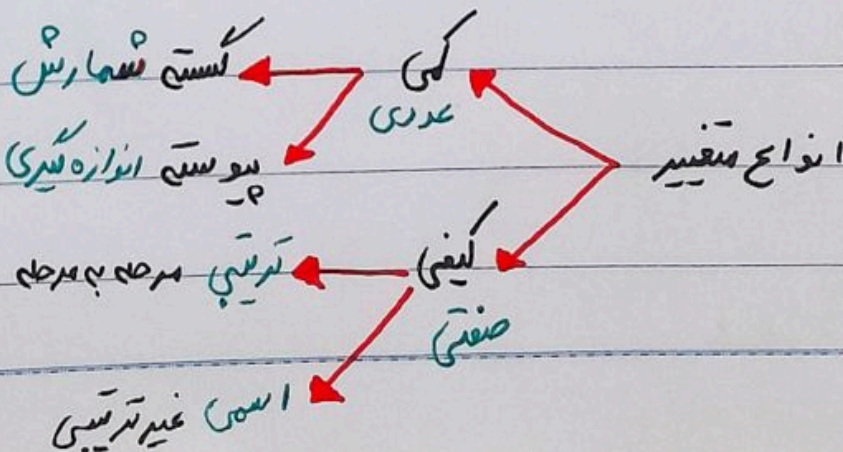 انواع متغییر
کمی
عددی
گسسته شمارش
پیوسته اندازه گیری
کیفی
صفتی
ترتیبی مرحله به مرحله
اسمی غیر ترتیبی